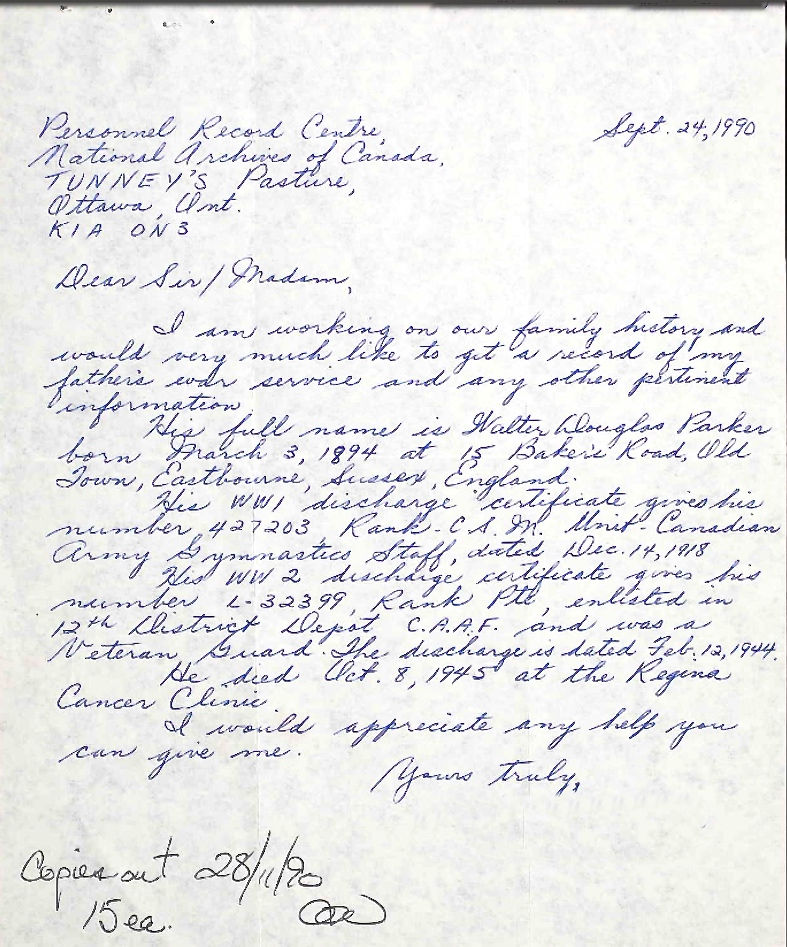 Personnel Record Centre, Sept. 24, 1990
National Archives of Canada,
TUNNEY'S Pasture,
Ottawa, Ont.
K1A 0N3
Dear Sir/Madam,
I am working on our family history and
would very much like to get a record of my
father's war service and any other pertinent
information.
His full name is Walter Douglas Parker
born March 3, 1894 at 15 Baker's Road, Old
Town, Eastbourne, Sussex, England.
His WW1 discharge certificate gives his
number 427203, Rank - C.S.M. Unit - Canadian
Army Gymnastics Staff, dated Dec. 14, 1918
His WW2 discharge certificate gives his
number L-32399, Rank Pte, enlisted in
12th District Depot C.A.A.F. and was a
Veteran Guard. The discharge is dated Feb. 12, 1944.
He died Oct. 8, 1945 at the Regina
Cancer Clinic.
I would appreciate any help you
can give me.
Yours truly,
Copies out 28/11/90
15 ea.